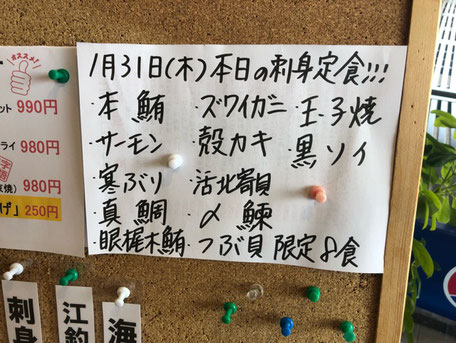 1月31日(木)本日の刺身定食!!!
・本鮪 ・ズワイガニ ・玉子焼
・サーモン ・殻カキ ・黒ソイ
・寒ぶり ・活北寄貝
・真鯛 ・〆鰊
・眼梶木鮪 ・つぶ貝 限定8食
オススメ!
ット 990円
ライ 980円
焼) 980円
げ」 250円
刺身
江釣
海